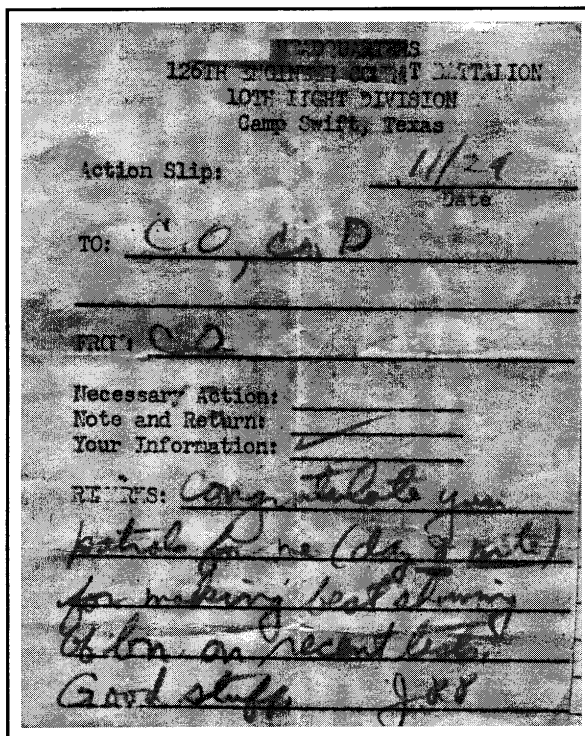 HEADQUARTERS
126TH ENGINEER COMBAT BATTALION
10TH LIGHT DIVISION
Camp Swift, Texas
Action Slip: 11/29
Date
TO: C.O., Co. D
FROM: CO
Necessary Action:
Note and Return:
Your Information:
REMARKS: Congratulate your
patrols for me (day & nite)
for making best showing
of bn on recent tests.
Good stuff.